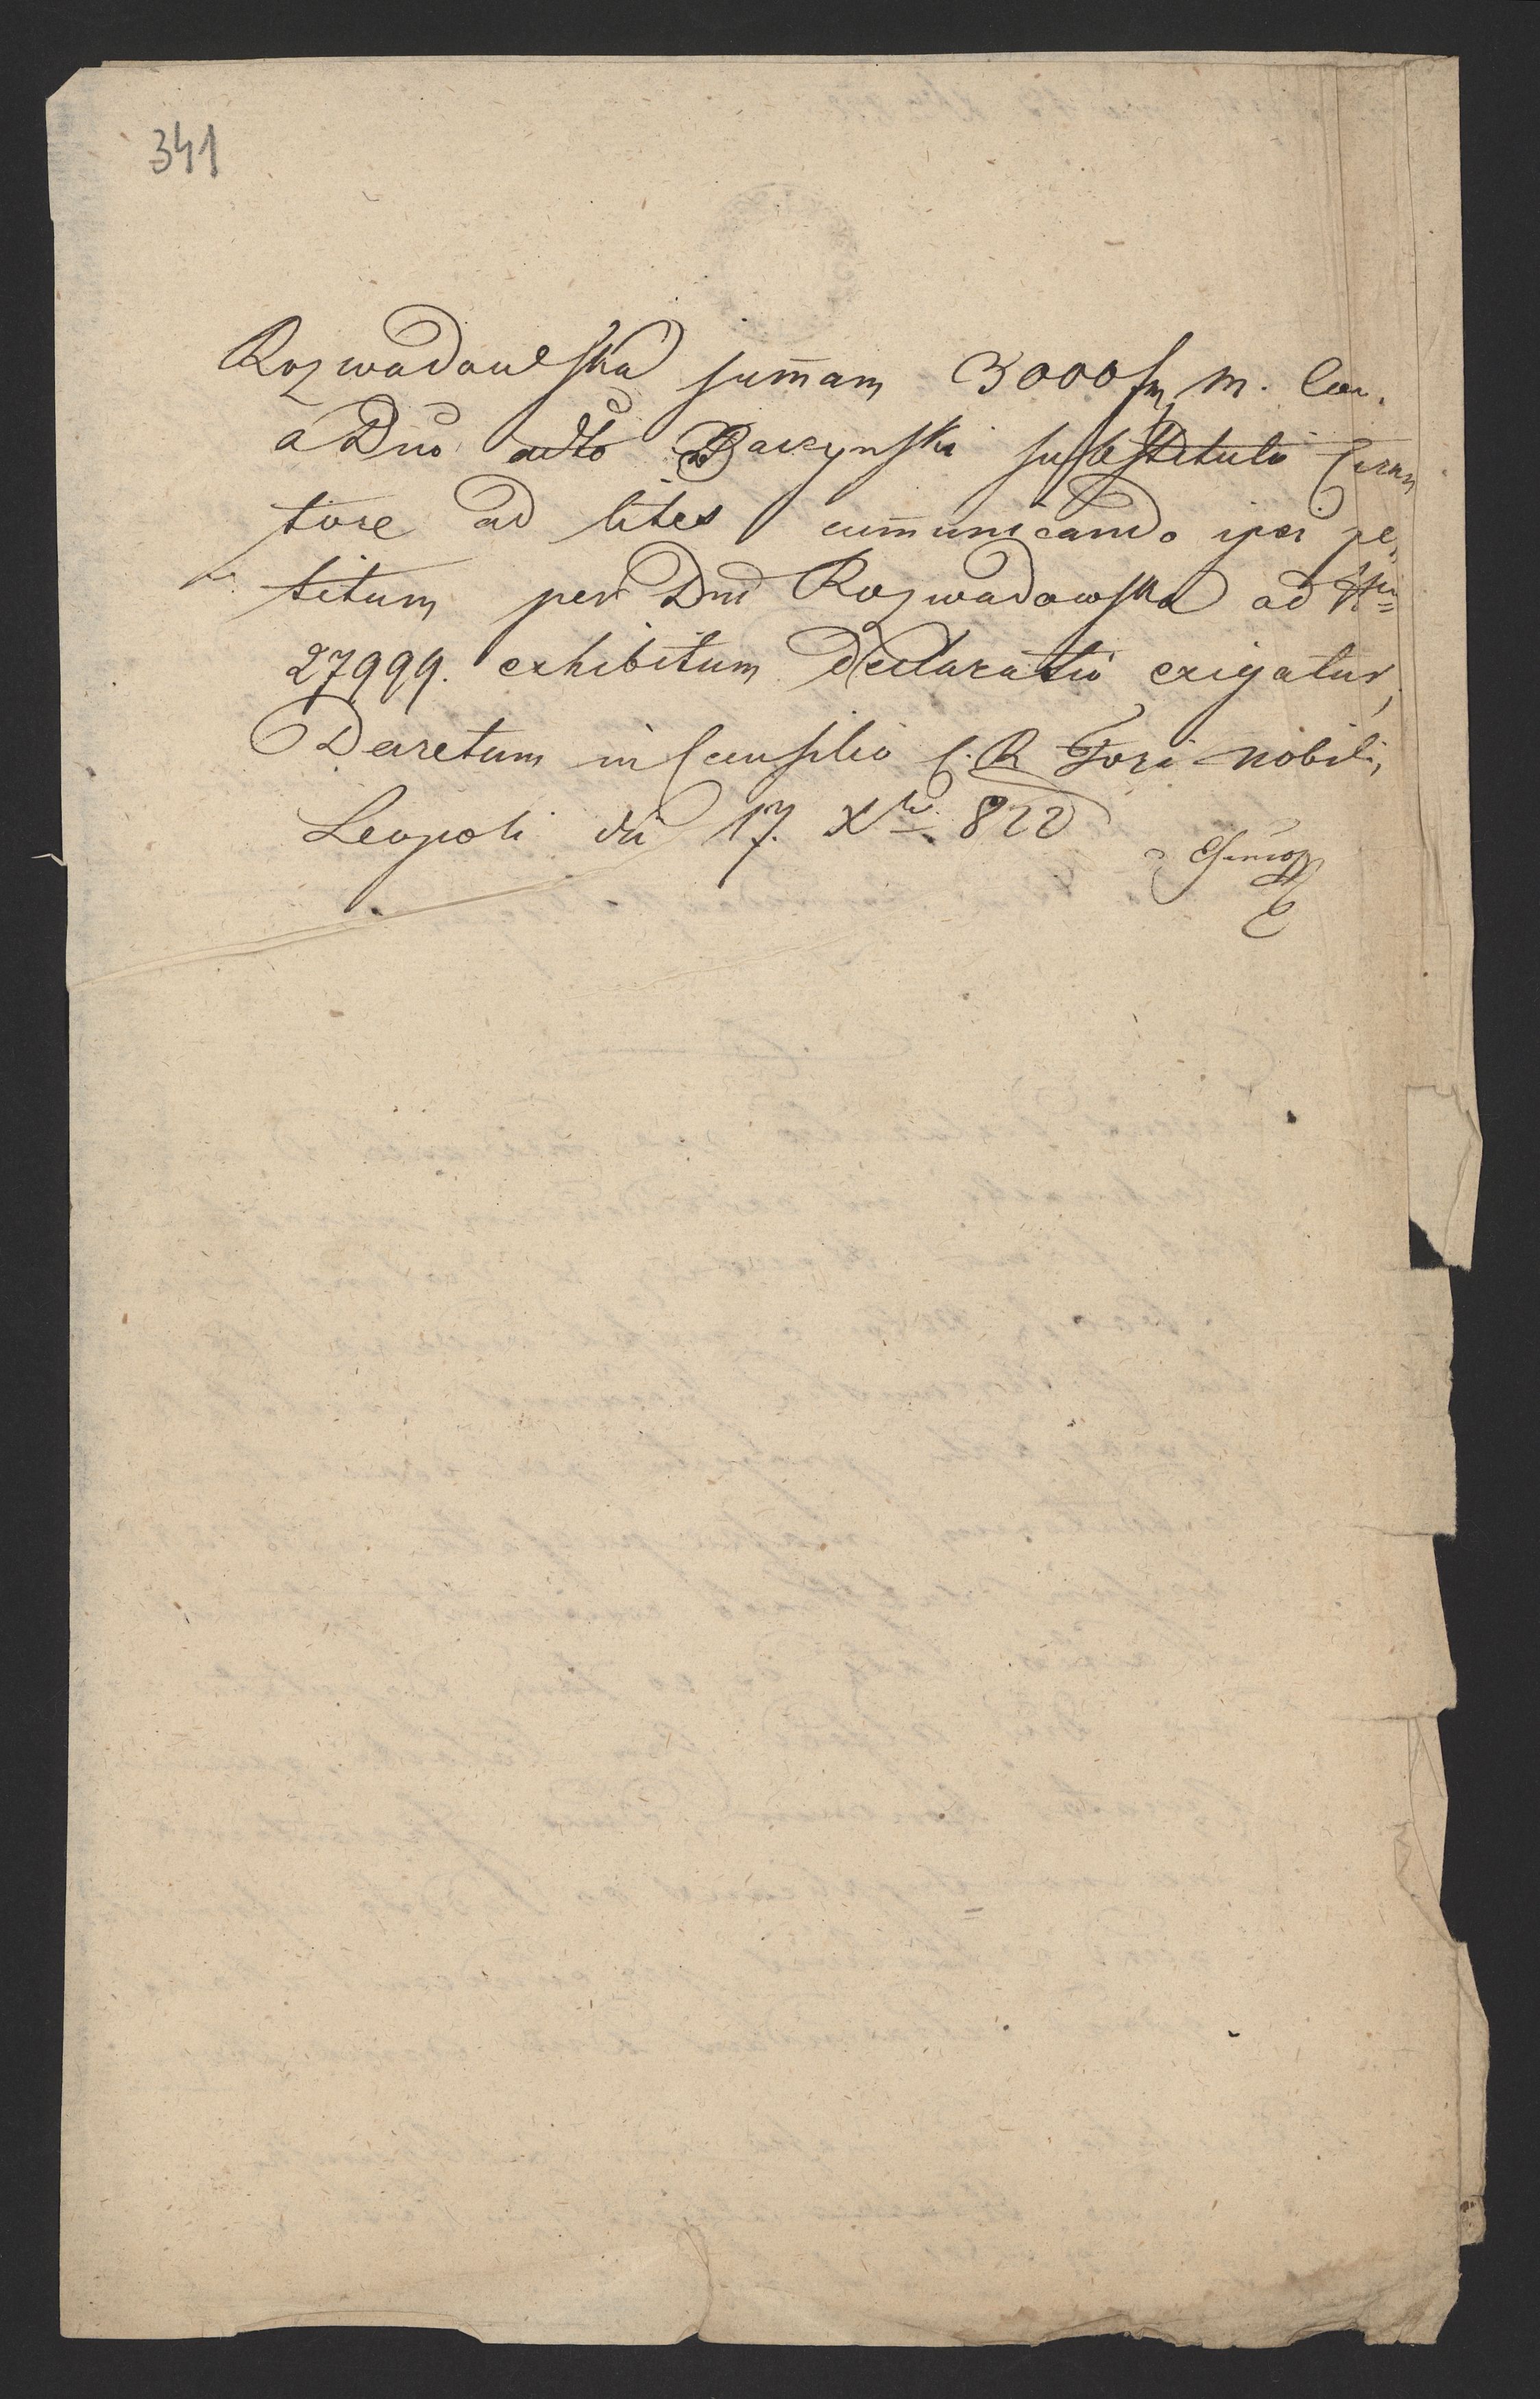 341
Rozwadowska sum̄am 3000 fr m. Con.
a Dno adto Baczynski substituto Cura
tore ad lites com̄unicando ipsi pe,
titum per Dnā Rozwadowska ad Nrum
27999. exhibitum declaratio exigatur,
Decretum in Consilio C. R. Fori nobil,
Leopoli die 17. Xbr. 822